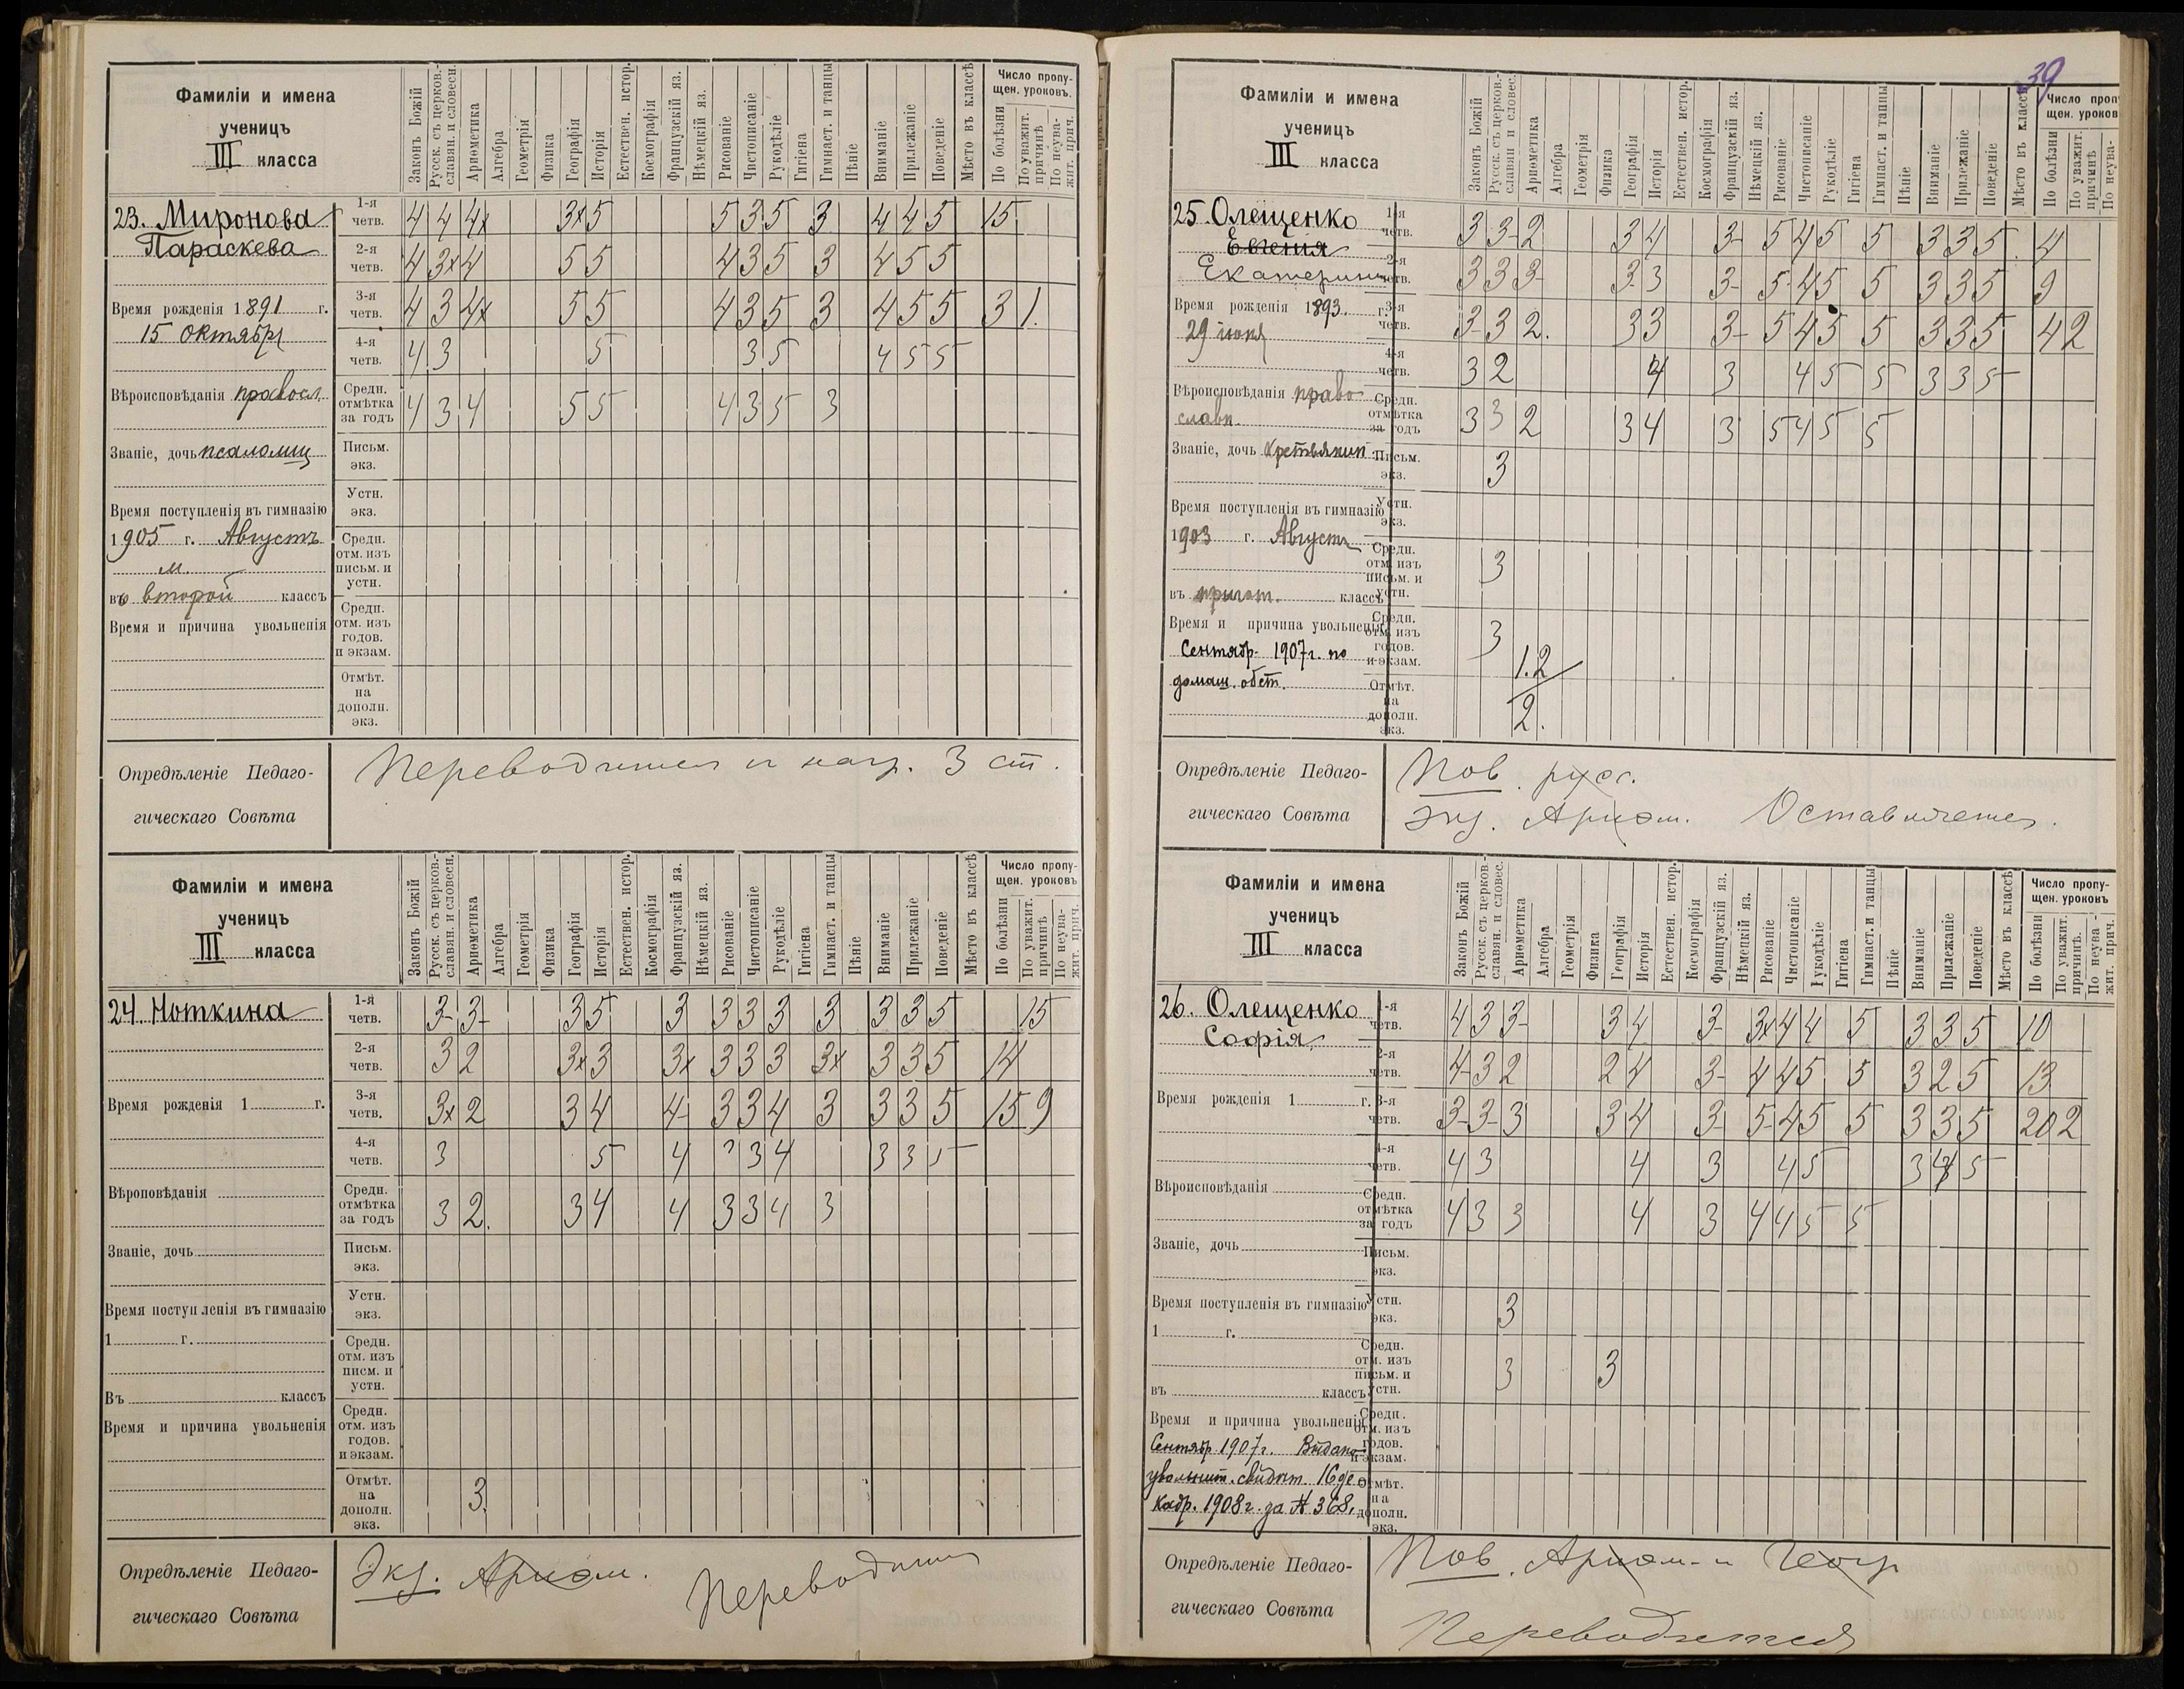 39
Фамиліи и имена
ученицъ
III класса
Законъ Божій
Русск. съ церков.-
славян. и словесн.
Ариѳметика
Алгебра
Геометрія
Физика
Географія
Исторія
Естествен. истор.
Космографія
Французскій яз.
Нѣмецкій яз.
Рисованіе
Чистописаніе
Рукодѣліе
Гигіена
Гимнаст. и танцы
Пѣніе
Вниманіе
Прилежаніе
Поведеніе
Мѣсто въ классѣ
Число пропу-
щен. уроковъ.
По болѣзни
По уважит.
причинѣ
По неува-
жит. прич.
23. Миронова
Параскева
Время рожденія 1891 г.
15 октября
Вѣроисповѣданія правосл.
Званіе, дочь псаломщ
Время поступленія въ гимназію
1905 г. Августъ
м.
во второй классъ
Время и причина увольненія
1-я четв. 4 4 4x 3x 5 5 3 5 3 4 4 5 15
2-я четв. 4 3x 4 5 5 4 3 5 3 4 5 5
3-я четв. 4 3 4x 5 5 4 3 5 3 4 5 5 3 1.
4-я четв. 4 3 5 3 5 4 5 5
Средн. отмѣтка за годъ 4 3 4 5 5 4 3 5 3
Письм. экз.
Устн. экз.
Средн. отм. изъ письм. и устн.
Средн. отм. изъ годов. и экзам.
Отмѣт. на дополн. экз.
Опредѣленіе Педаго-
гическаго Совѣта
3 ст.
Фамиліи и имена
ученицъ
III класса
Законъ Божій
Русск. съ церков.-
славян. и словесн.
Ариѳметика
Алгебра
Геометрія
Физика
Географія
Исторія
Естествен. истор.
Космографія
Французскій яз.
Нѣмецкій яз.
Рисованіе
Чистописаніе
Рукодѣліе
Гигіена
Гимнаст. и танцы
Пѣніе
Вниманіе
Прилежаніе
Поведеніе
Мѣсто въ классѣ
Число пропу-
щен. уроковъ
По болѣзни
По уважит.
причинѣ
По неува-
жит. прич.
24. Ноткина
Время рожденія 1 г.
Вѣроповѣданія
Званіе, дочь
Время поступленія въ гимназію
1 г.
Въ классъ
Время и причина увольненія
1-я четв. 3- 3- 3 5 3 3 3 3 3 3 3 5 15
2-я четв. 3 2 3x 3 3x 3 3 3 3x 3 3 5 14
3-я четв. 3x 2 3 4 4- 3 3 4 3 3 3 5 15 9
4-я четв. 3 5 4 3 4 3 3 5
Средн. отмѣтка за годъ 3 2. 3 4 4 3 3 4 3
Письм. экз.
Устн. экз.
Средн. отм. изъ писм. и устн.
Средн. отм. изъ годов. и экзам.
Отмѣт. на дополн. экз. 3.
Опредѣленіе Педаго-
гическаго Совѣта
Экз. Ариѳм.
Фамиліи и имена
ученицъ
III класса
Законъ Божій
Русск. съ церков.-
славян и словес.
Ариѳметика
Алгебра
Геометрія
Физика
Географія
Исторія
Естествен. истор.
Космографія
Французскій яз.
Нѣмецкій яз.
Рисованіе
Чистописаніе
Рукодѣліе
Гигіена
Гимнаст. и танцы
Пѣніе
Вниманіе
Прилежаніе
Поведеніе
Мѣсто въ классѣ
Число проп
щен. уроков
По болѣзни
По уважит.
причинѣ
По неува-
25. Олещенко
Евгенія
Екатерина
Время рожденія 1893. г.
29 іюня
Вѣроисповѣданія право
славн.
Званіе, дочь
Время поступленія въ гимназію
1903 г. Августъ
въ пригот. классъ
Время и причина увольненія
Сентябр- 1907г. по
домаш. обст.
1-я четв. 3 3- 2 3 4 3- 5 4 5 5 3 3 5 4
2-я четв. 3 3 3- 3- 3 3- 5- 4 5 5 3 3 5 9
3-я четв. 3- 3 2. 3 3 3- 5 4 5 5 3 3 5 4 2
4-я четв. 3 2 4 3 4 5 5 3 3 5
Средн. отмѣтка за годъ 3 3 2 3 4 3 5 4 5 5
Письм. экз. 3
Устн. экз.
Средн. отм. изъ письм. и устн. 3
Средн. отм. изъ годов. и экзам. 3 1.2
Отмѣт. на дополн. экз. 2.
Опредѣленіе Педаго-
гическаго Совѣта
Пов. русс.
Экз. Ариѳм. Оставляется.
Фамиліи и имена
ученицъ
III класса
Законъ Божій
Русск. съ церков-
славян. и словес.
Ариѳметика
Алгебра
Геометрія
Физика
Географія
Исторія
Естествен. истор.
Космографія
Французскій яз.
Нѣмецкій яз.
Рисованіе
Чистописаніе
Рукодѣліе
Гигіена
Гимнаст. и танцы
Пѣніе
Вниманіе
Прилежаніе
Поведеніе
Мѣсто въ классѣ
Число пропу-
щен. уроковъ
По болѣзни
По уважит.
причинѣ.
По неува-
жит. прич.
26. Олещенко
Софія
Время рожденія 1 г.
Вѣроисповѣданія
Званіе, дочь
Время поступленія въ гимназію
1 г.
въ классъ
Время и причина увольненія
Сентябр 1907г. Выдано
увольнит. свидѣт. 16 де
кабр. 1908 г. за № 368.
1-я четв. 4 3 3- 3 4 3- 3x 4 4 5 3 3 5 10
2-я четв. 4- 3 2 2 4 3- 4 4 5 5 3 2 5 13
3-я четв. 3- 3- 3 3 4 3- 5- 4 5 5 3 3 5 20 2
4-я четв. 4 3 4 3 4 5 3 4 5
Средн. отмѣтка за годъ 4 3 3 4 3 4 4 5 5
Письм. экз.
Устн. экз. 3
Средн. отм. изъ письм. и устн. 3 3
Средн. отм. изъ годов. и экзам.
Отмѣт. на дополн. экз.
Опредѣленіе Педаго-
гическаго Совѣта
Пов. Ариѳм. и Геогр
Переводится